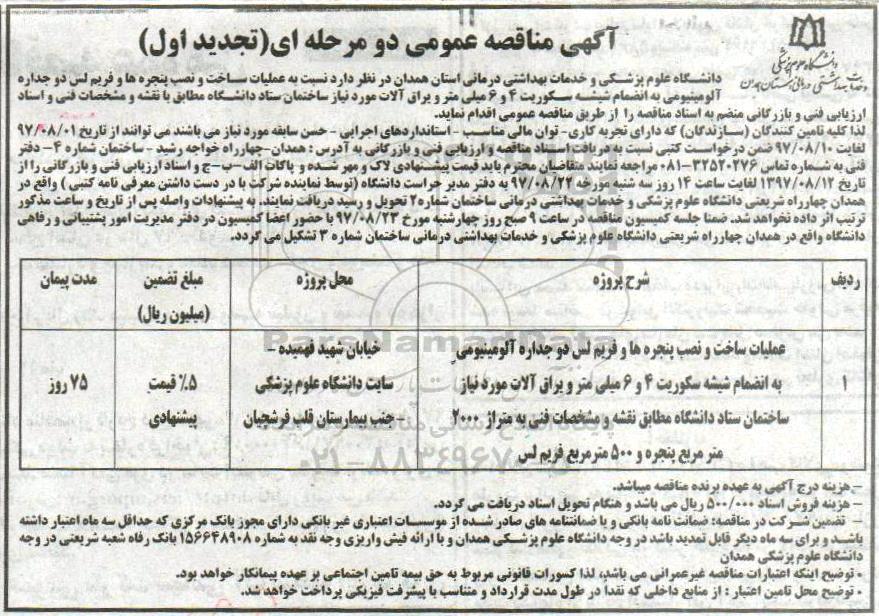 آگهی مناقصه عمومی دو مرحله ای(تجدید اول)
دانشگاه علوم پزشکی
و خدمات بهداشتی درمانی استان همدان
دانشگاه علوم پزشکی و خدمات بهداشتی درمانی استان همدان در نظر دارد نسبت به عملیات ساخت و نصب پنجره ها و فریم لس دو جداره
آلومینیومی به انضمام شیشه سکوریت ۴ و ۶ میلی متر و یراق آلات مورد نیاز ساختمان ستاد دانشگاه مطابق با نقشه و مشخصات فنی و اسناد
ارزیابی فنی و بازرگانی منضم به اسناد مناقصه را از طریق مناقصه عمومی اقدام نماید.
لذا کلیه تامین کنندگان (سازندگان) که دارای تجربه کاری- توان مالی مناسب - استانداردهای اجرایی - حسن سابقه مورد نیاز می باشند می توانند از تاریخ ۹۷/۰۸/۰۱
لغایت ۹۷/۰۸/۱۰ ضمن درخواست کتبی نسبت به دریافت اسناد مناقصه و ارزیابی فنی و بازرگانی به آدرس : همدان-چهارراه خواجه رشید - ساختمان شماره ۴- دفتر
فنی به شماره تماس ۳۲۵۲۰۲۷۶-۰۸۱ مراجعه نمایند متقاضیان محترم باید قیمت پیشنهادی لاک و مهر شده و پاکات الف-ب-ج و اسناد ارزیابی فنی و بازرگانی را از
تاریخ ۱۳۹۷/۰۸/۱۲ لغایت ساعت ۱۴ روز سه شنبه مورخه ۹۷/۰۸/۲۲ به دفتر مدیر حراست دانشگاه (توسط نماینده شرکت با در دست داشتن معرفی نامه کتبی ) واقع در
همدان چهارراه شریعتی دانشگاه علوم پزشکی و خدمات بهداشتی درمانی ساختمان شماره۲ تحویل و رسید دریافت نمایند. به پیشنهادات واصله پس از تاریخ و ساعت مذکور
ترتیب اثر داده نخواهد شد. ضمنا جلسه کمیسیون مناقصه در ساعت ۹ صبح روز چهارشنبه مورخ ۹۷/۰۸/۲۳ با حضور اعضا کمیسیون در دفتر مدیریت امور پشتیبانی و رفاهی
دانشگاه واقع در همدان چهارراه شریعتی دانشگاه علوم پزشکی و خدمات بهداشتی درمانی ساختمان شماره ۳ تشکیل می گردد.
ردیف شرح پروژه محل پروژه مبلغ تضمین مدت پیمان
(میلیون ریال)
عملیات ساخت و نصب پنجره ها و فریم لس دو جداره آلومینیومی خیابان شهید فهمیده -
۱ به انضمام شیشه سکوریت ۴ و ۶ میلی متر و یراق آلات مورد نیاز سایت دانشگاه علوم پزشکی ۵٪ قیمت ۷۵ روز
ساختمان ستاد دانشگاه مطابق نقشه و مشخصات فنی به متراژ ۲۰۰۰ جنب بیمارستان قلب فرشچیان پیشنهادی
متر مربع پنجره و ۵۰۰ مترمربع فریم لس
ParsNamadData
۰۲۱-۸۸۳۴۹۶۷۰
- هزینه درج آگهی به عهده برنده مناقصه میباشد.
- هزینه فروش اسناد ۵۰۰/۰۰۰ ریال می باشد و هنگام تحویل اسناد دریافت می گردد.
- تضمین شرکت در مناقصه: ضمانت نامه بانکی و یا ضمانتنامه های صادر شده از موسسات اعتباری غیر بانکی دارای مجوز بانک مرکزی که حداقل سه ماه اعتبار داشته
باشد و برای سه ماه دیگر قابل تمدید باشد در وجه دانشگاه علوم پزشکی همدان و با ارائه فیش واریزی وجه نقد به شماره ۱۵۶۶۴۸۹۰۸ بانک رفاه شعبه شریعتی در وجه
دانشگاه علوم پزشکی همدان
- توضیح اینکه اعتبارات مناقصه غیرعمرانی می باشد، لذا کسورات قانونی مربوط به حق بیمه تامین اجتماعی بر عهده پیمانکار خواهد بود.
- توضیح محل تامین اعتبار : از منابع داخلی که نقدا در طول مدت قرارداد و متناسب با پیشرفت فیزیکی پرداخت خواهد شد.